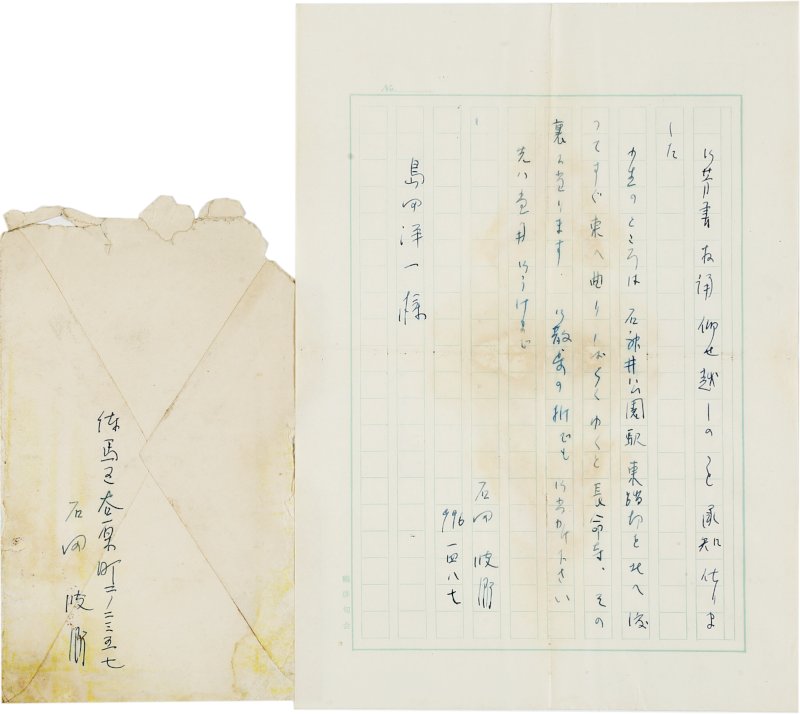 No.
御葉書拝誦 仰せ越しのこと承知仕りま
した
小生のところは 石神井公園駅東踏切を北へ渡
つてすぐ東へ曲り しばらくゆくと長命寺、その
裏に当ります 御散歩の折でも 御立寄り下さい
先は 御うけまで
石田波郷
996 一四八七
島田洋一様
練馬区谷原町二ノ二三五七
石田波郷